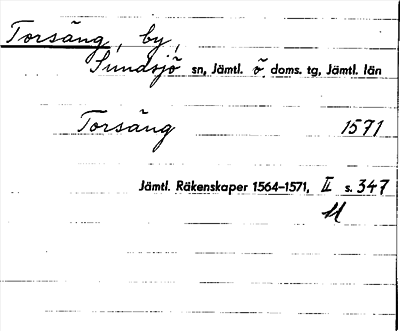 Torsäng, by,
Sundsjö sn, Jämtl. ö. doms. tg, Jämtl. län
Torsäng 1571
Jämtl. Räkenskaper 1564–1571, II s. 347
M